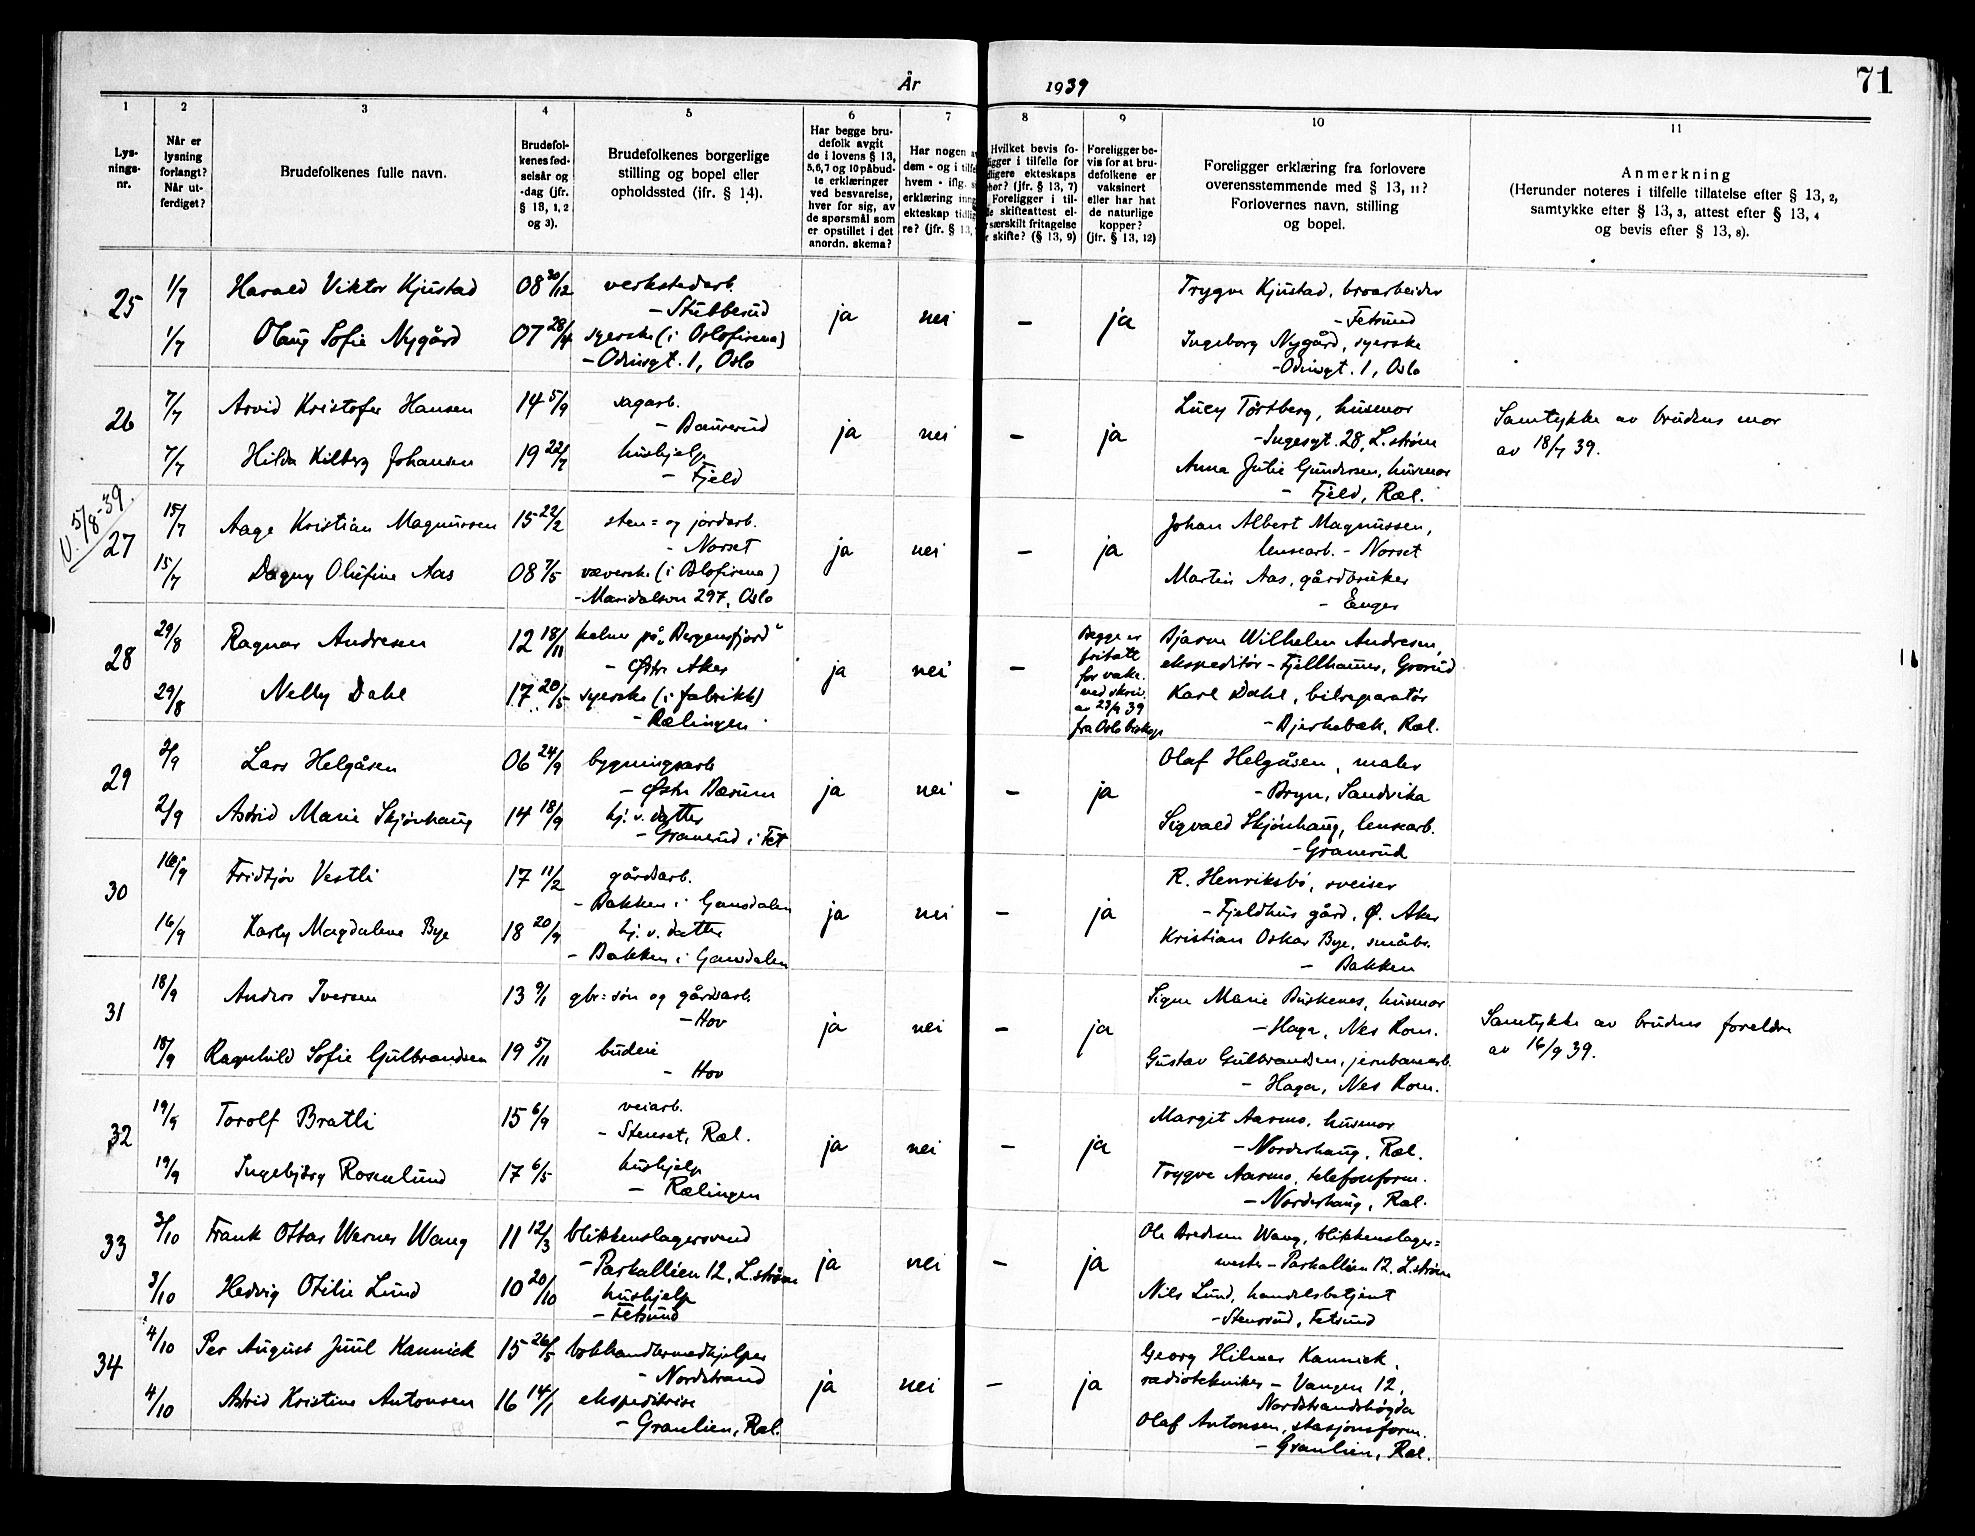 År 1939
71
1 2 3 4 5 6 7 8 9 10 11
Lys-
nings-
nr.
Når er
lysning
forlangt?
Når ut-
ferdiget?
Brudefolkenes fulle navn.
Brudefol-
kenes fød-
selsår og
-dag (jfr.
§ 13, 1, 2
og 3).
Brudefolkenes borgerlige
stilling og bopel eller
opholdssted (jfr. § 14).
Har begge bru-
defolk avgit
de i lovens § 13,
5, 6, 7 og 10 påbud-
te erklæringer
ved besvarelse,
hver for sig, av
de spørsmål som
er opstillet i det
anordn. skema?
Har nogen
dem - og i
hvem - iflg.
erklæring
ekteskap
re? (jfr. § 13,
Hvilket bevis fo-
i tilfelle for
ekteskaps
(jfr. § 13, 7)
Foreligger i til-
skifteattest el-
særskilt fritagelse
skifte? (§ 13, 9)
Foreligger be-
vis for at bru-
defolkene er
vaksinert
eller har hat
de naturlige
kopper?
(jfr. § 13, 12)
Foreligger erklæring fra forlovere
overensstemmende med § 13, 11?
Forlovernes navn, stilling
og bopel.
Anmerkning
(Herunder noteres i tilfelle tillatelse efter § 13, 2,
samtykke efter § 13, 3, attest efter § 13, 4
og bevis efter § 13, 8).
25 1/7 Harald Viktor Kjustad 08 30/12 verkstedarb.
- Stubberud
1/7 Olaug Sofie Nygård 07 28/4 syerske (i Oslofirma)
- Odinsgt. 1, Oslo
ja nei — ja
Trygve Kjustad, broarbeider
- Fetsund
Ingeborg Nygård, syerske
- Odinsgt. 1, Oslo
26 7/7 Arvid Kristofer Hansen 14 5/9 sagarb.
- Daurerud
7/7 Hilda Kilberg Johansen 19 22/7 hushjelp
- Fjeld
ja nei — ja
Lucy Torsberg, husmor
- Ingesgt. 28, L.strøm
Anna Julie Gundersen, husmor
- Fjeld, Ræl.
Samtykke av brudens mor
av 18/7 39.
U. 5/8-39.
27 15/7 Aage Kristian Magnussen 15 22/2 sten= og jordarb.
- Norset
15/7 Dagny Olufine Aas 08 7/5 væverske (i Oslofirma)
- Maridalsvn 297, Oslo
ja nei — ja
Johan Albert Magnussen,
lensearb. - Norset
Martin Aas, gårdbruker
- Enger
28 29/8 Ragnar Andresen 12 18/11 kelner på „Bergensfjord"
- Østr. Aker
29/8 Nelly Dahl 17 20/5 syerske (i fabrikk)
- Rælingen
ja nei —
Begge er
fritatt
for vaks.
ved skriv.
av 23/9 39
fra Oslo biskop
Bjarne Wilhelm Andresen,
ekspeditør - Fjellhammer, Grorud
Karl Dahl, bilreparatør
- Bjerkebæk, Ræl.
29 2/9 Lars Helgåsen 06 24/9 bygningsarb.
- Østr. Bærum
2/9 Astrid Marie Skjønhaug 14 18/9 hj. v. datter
- Granerud i Fet
ja nei — ja
Olaf Helgåsen, maler
- Bryn, Sandvika
Sigvald Skjønhaug, lensearb.
- Granerud
30 16/9 Fridtjov Vestli 17 11/2 gårdsarb.
- Bakken i Gansdalen
16/9 Karly Magdalene Bye 18 20/9 hj. v. datter
- Bakken i Gansdalen
ja nei — ja
R. Henriksbø, sveiser
- Fjeldhus gård, Ø. Aker
Kristian Oskar Bye, småbr.
- Bakken
31 18/9 Anders Iversen 13 9/1 gbr: søn og gårdsarb.
- Hov
18/9 Ragnhild Sofie Gulbrandsen 19 5/11 budeie
- Hov
ja nei — ja
Signe Marie Buskenes, husmor
- Haga, Nes Rom.
Gustav Gulbrandsen, jernbanearb.
- Haga, Nes Rom.
Samtykke av brudens foreldre
av 16/9 39.
32 19/9 Torolf Bratli 15 6/9 veiarb.
- Stenset, Ræl.
19/9 Ingebjörg Rosenlund 17 6/5 hushjelp
- Rælingen
ja nei — ja
Margit Aarmo, husmor
- Norderhaug, Ræl.
Trygve Aarmo, telefonform.
- Norderhaug, Ræl.
33 3/10 Frank Ottar Werner Wang 11 12/3 blikkenslagersvend
- Parkalléen 12, L.strøm
3/10 Hedvig Otilie Lund 10 20/10 hushjelp
- Fetsund
ja nei — ja
Ole Bredesen Wang, blikkenslager=
mester - Parkalléen 12, L.strøm
Nils Lund, handelsbetjent
- Stensrud, Fetsund
34 4/10 Per August Juul Kannick 15 26/5 bokhandlermedhjelper
- Nordstrand
4/10 Astrid Kristine Antonsen 16 14/1 ekspeditrise
- Granlien, Ræl.
ja nei — ja
Georg Hilmar Kannick,
radiotekniker - Vangen 12,
Nordstrandshøgda
Olaf Antonsen, stasjonsform.
- Granlien, Ræl.